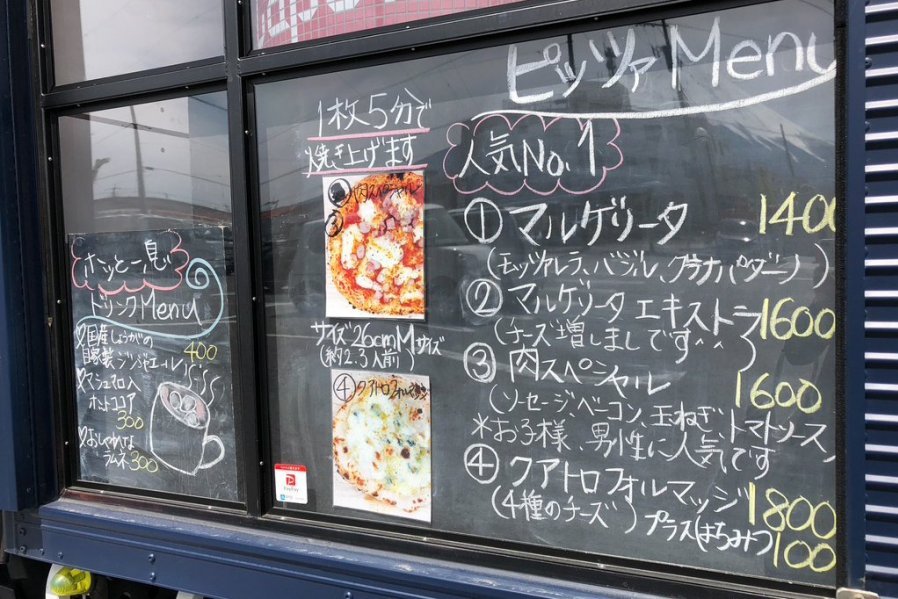 ホッと一息
ドリンクMenu
♡国産しょうがの
自家製ジンジャエール 400
♡マシュマロ入
ホットココア
300
♡おしゃれな
ラムネ 300
1枚5分で
焼き上げます
③ 肉スペシャル
サイズ26cmMサイズ
(約2.3人前)
④クアトロフォルマッジ
PayPay
ピッツァMenu
人気No.1
①マルゲリータ 1400
(モッツァレラ、バジル、グラナパダーノ)
②マルゲリータエキストラ 1600
(チーズ増しましです^^)
③肉スペシャル 1600
(ソーセージ、ベーコン、玉ねぎ、トマトソース)
*お子様、男性に人気です
④クアトロフォルマッジ 1800
(4種のチーズ) プラスはちみつ 100